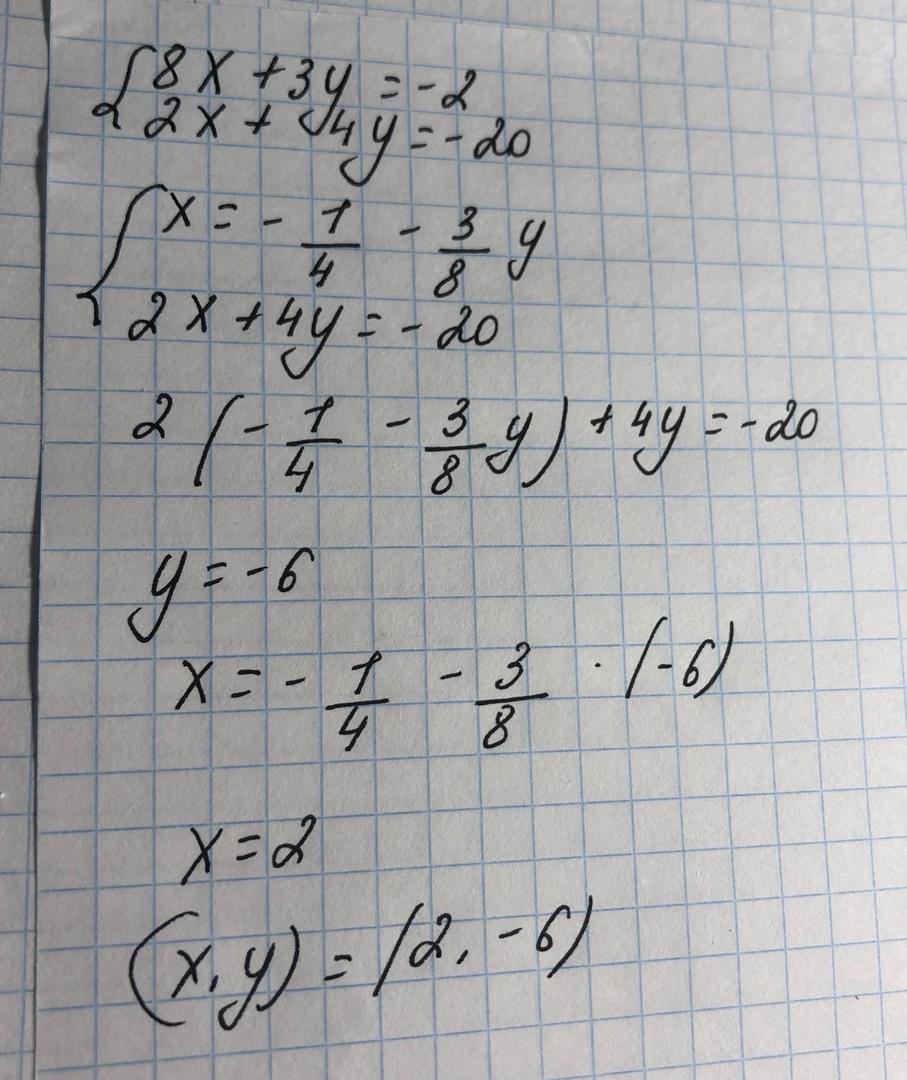 {8x + 3y = -2
2x + 4y = -20
{x = - 1/4 - 3/8 y
2x + 4y = -20
2 (- 1/4 - 3/8 y) + 4y = -20
y = -6
x = - 1/4 - 3/8 · (-6)
x = 2
(x, y) = (2, -6)